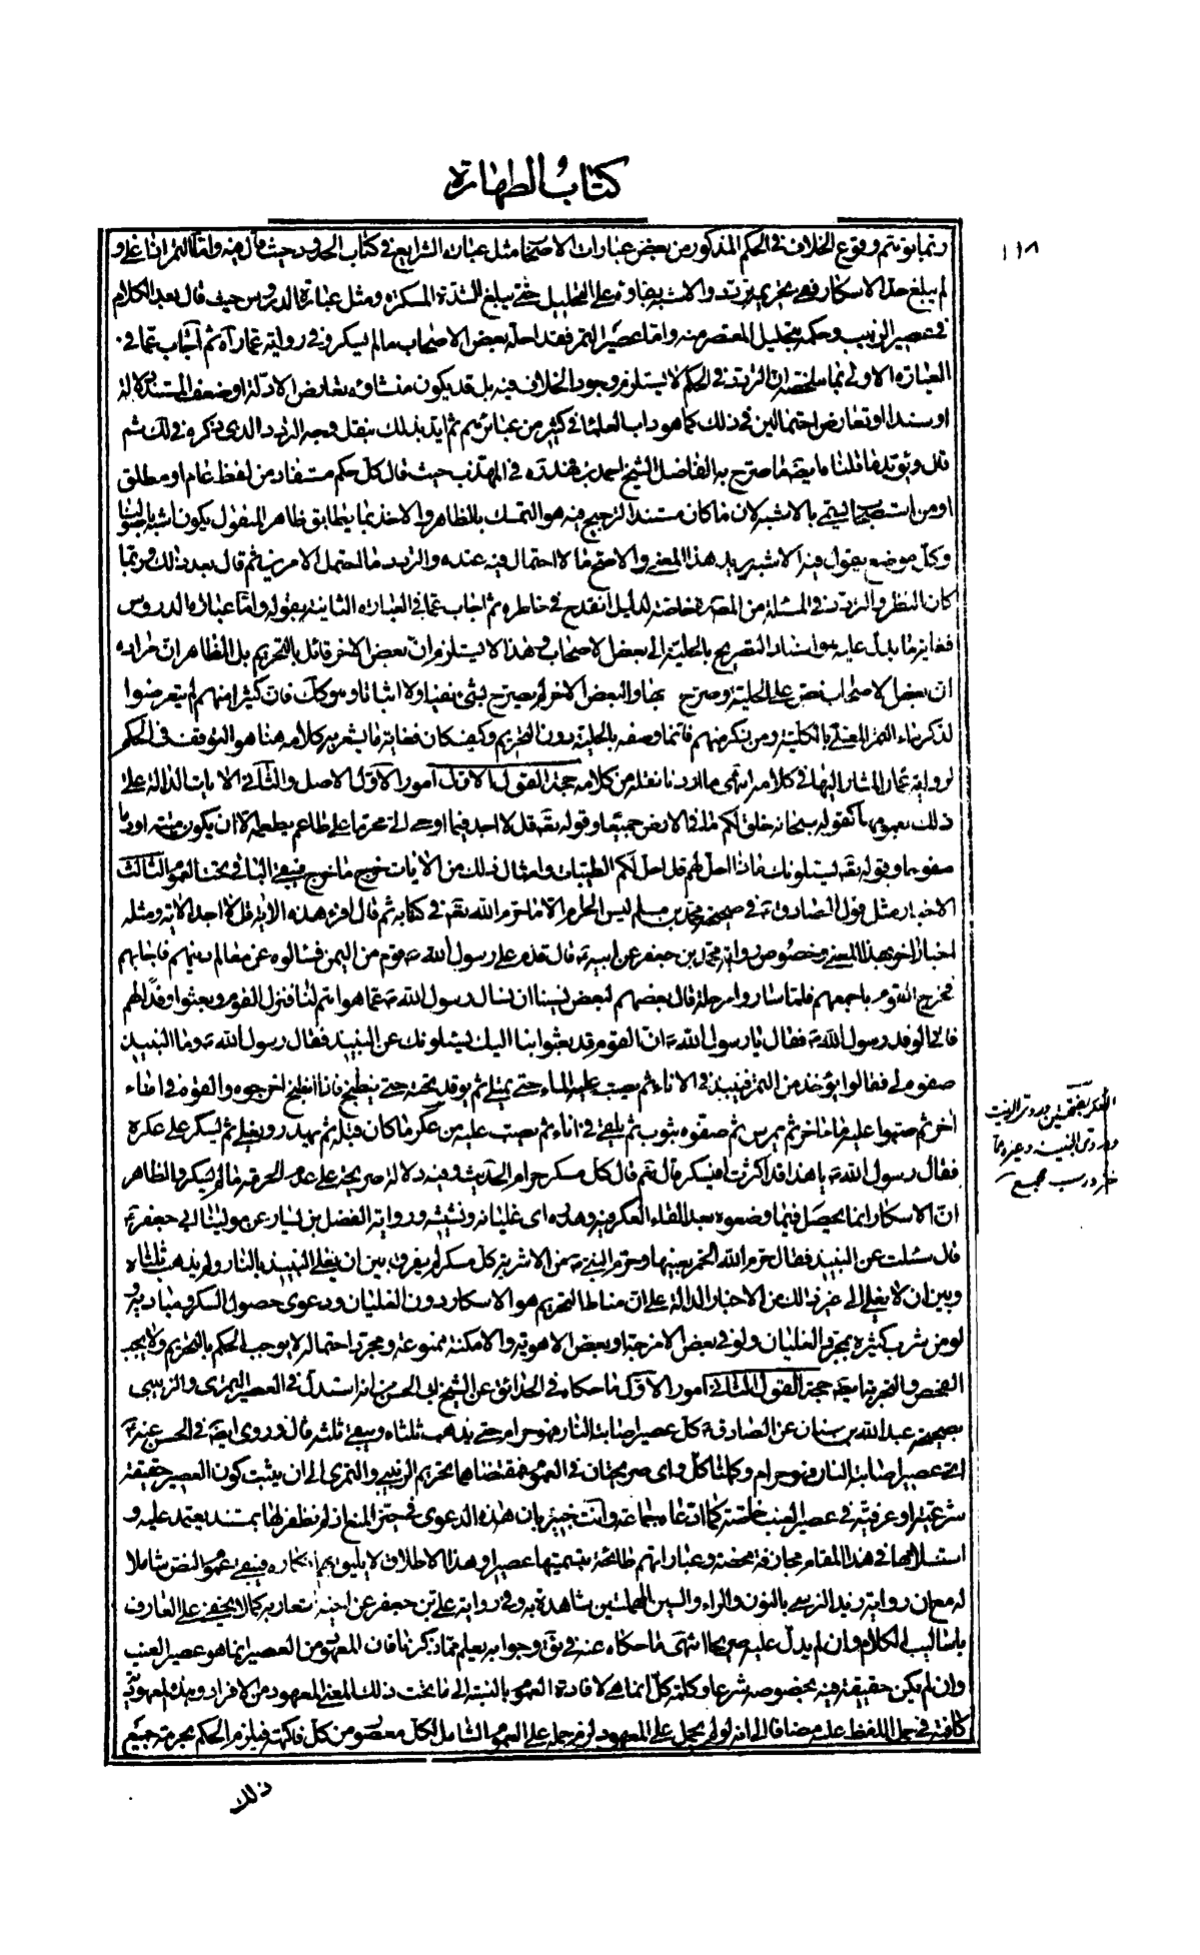 كتاب الطهارة
١١٨
ربما يتوهم وقوع الخلاف في الحكم المذكور من بعض عبارات الاصحاب مثل عبارة الشرايع في كتاب الحدود حيث قال فيه واما التمر اذا غلى و
لم يبلغ حد الاسكار ففي تحريمه تردد والاشبه بقاؤه على التحليل حتى يبلغ الشدة المسكرة ومثل عبارة الدروس حيث قال بعد الكلام
في عصير الزبيب وحكمه بتحليل المعتصر منه واما عصير التمر فقد احله بعض الاصحاب ما لم يسكر وفي رواية عمار اه ثم اجاب عما في
العبارة الاولى بما ملخصه ان التردد في الحكم لا يستلزم وجود الخلاف فيه بل قد يكون منشاؤه تعارض الادلة او ضعف المستند دلالة
او سندا او تعارض احتمالين في ذلك كما هو داب العلماء في كثير من عبائرهم ثم ايد ذلك بنقل وجه التردد الذي ذكره في لك ثم
قال ويؤيد ما قلنا ما صرح به الفاضل الشيخ احمد بن فهد ره في المهذب حيث قال كل حكم مستفاد من لفظ عام او مطلق
او من استصحاب يسمى بالاشبه لان ما كان مستند الترجيح فيه هو التمسك بالظاهر والاخذ بما يطابق ظاهر المنقول يكون اشبه باصولنا
وكل موضع يقول فيه الاشبه يريد هذا المعنى والاصح ما لا احتمال فيه عنده والتردد ما احتمل الامرين ثم قال بعد ذلك وربما
كان النظر والتردد في المسئلة من المص خاصة لدليل انقدح في خاطره ثم اجاب عما في العبارة الثانية بقوله واما عبارة الدروس
فغاية ما يدل عليه هو اسناد التصريح بالحلية الى بعض الاصحاب وهذا لا يستلزم ان بعض الاخر قائل بالتحريم بل الظاهر ان مراده
ان بعض الاصحاب نص على الحلية وصرح بها والبعض الاخر لم يصرح بشئ نفيا ولا اثباتا وهو كك فان كثيرا منهم لم يتعرضوا
لذكر ماء التمر المغلي بالكلية ومن ذكر منهم فانما وصفه بالحلية دون التحريم وكيف كان فغاية ما يشعر به كلامه هنا هو التوقف في الحكم
لرواية عمار المشار اليها في كلامه انتهى ما اردنا نقله من كلامه حجة القول الاول امور الاول الاصل والثاني الايات الدالة على
ذلك بعمومها كقوله سبحانه خلق لكم ما في الارض جميعا وقوله تعه قل لا اجد فيما اوحي الي محرما على طاعم يطعمه الا ان يكون ميتة او دما
مسفوحا وقوله تعه يسئلونك ماذا احل لهم قل احل لكم الطيبات وامثال ذلك من الايات خرج ما خرج فيبقى الباقي تحت العموم الثالث
الاخبار مثل قول الصادق ع في صحيحة محمد بن مسلم ليس الحرام الا ما حرم الله تعه في كتابه ثم قال اقرء هذه الاية قل لا اجد الاية ومثله
اخبار اخر بهذا المعنى وخصوص رواية محمد بن جعفر عن ابيه ع قال قدم على رسول الله ص قوم من اليمن فسئلوه عن معالم دينهم فاجابهم
فخرج القوم باجمعهم فلما ساروا مرحلة قال بعضهم لبعض نسينا ان نسال رسول الله ص عما هو اهم لنا فنزل القوم وبعثوا وفدا لهم
فاتى الوفد رسول الله ص فقال يا رسول الله ص ان القوم قد بعثوا بنا اليك يسئلونك عن النبيذ فقال رسول الله ص وما النبيذ
صفوه لي فقالوا يؤخذ من التمر فينبذ في الاناء ثم يصب عليه الماء حتى يمتلئ ثم يوقد تحته حتى ينطبخ فاذا انطبخ اخرجوه والقوه في اناء
اخر ثم صبوا عليه ماء اخر ثم يمرس ثم صفوه بثوب ثم يلقى في اناء ثم يصب عليه من عكر ما كان قبله ثم يهدر ويغلي ثم يسكر على عكره
فقال رسول الله ص يا هذا قد اكثرت افيسكر قال نعم قال كل مسكر حرام الحديث وفيه دلالة صريحة على عدم الحرمة ما لم يسكر والظاهر
ان الاسكار انما يحصل فيما وصفوه بعد القاء العكر فيه وهدره اي غليانه ونشيشه ورواية الفضل بن يسار عن مولينا ابي جعفر ع
قال سئلت عن النبيذ فقال حرم الله الخمر بعينها وحرم النبي ص من الاشربة كل مسكر لم يفرق بين ان يغلي النبيذ بالنار ولم يذهب ثلثاه
وبين ان لا يغلي الى غير ذلك من الاخبار الدالة على ان مناط التحريم هو الاسكار دون الغليان ودعوى حصول السكر ومباديه و
لو من شرب كثيره بمجرد الغليان ولو في بعض الامزجة او بعض الاهوية والامكنة ممنوعة ومجرد احتماله لا يوجب الحكم بالتحريم ولا يجب
الفحص والتجربة حجة القول الثاني امور الاول ما حكاه في الحدائق عن الشيخ ابي الحسن انه استدل في العصير التمري والزبيبي
بصحيحة عبد الله بن سنان عن الصادق ع كل عصير اصابته النار فهو حرام حتى يذهب ثلثاه ويبقى ثلثه قال وروى ايضا في الحسن عنه ع
اي عصير اصابته النار فهو حرام وكلمتا كل واي صريحتان في العموم فمقتضاهما تحريم الزبيبي والتمري الى ان يثبت كون العصير حقيقة
شرعية او عرفية في عصير العنب خاصة كما ادعاه جماعة وانت خبير بان هذه الدعوى في حيز المنع اذ لم نظفر لها بمستند يعتمد عليه و
استسلامها في هذا المقام مجازفة محضة وعباراتهم طافحة بتسميتها عصيرا وهذا الاطلاق لا يليق بهم انكاره فيبقى عموم النص شاملا
له مع ان رواية زيد النرسي بالنون والراء والسين المهملتين شاهدة به وفي رواية علي بن جعفر عن اخيه ع اشعار به كما لا يخفى على العارف
باساليب الكلام وان لم يدل عليه صريحا انتهى ما حكاه عنه في ق وجوابه يعلم مما ذكرنا فان المعهود من العصير انما هو عصير العنب
وان لم يكن حقيقة فيه بخصوصه شرعا وكلمة كل انما هي لافادة العموم بالنسبة الى ما تحت ذلك المعنى المعهود من الافراد وهذه المعهودية
كافية في حمل اللفظ عليه مضافا الى انه لو لم يحمل على المعهود لزم حمله على العموم الشامل لكل معصور من كل فاكهة فيلزم الحكم بحرمة جميع
العكر بفتحتين دردي الزيت
ودردي النبيذ وغيره مما
خثر ورسب مجمع
ذلك